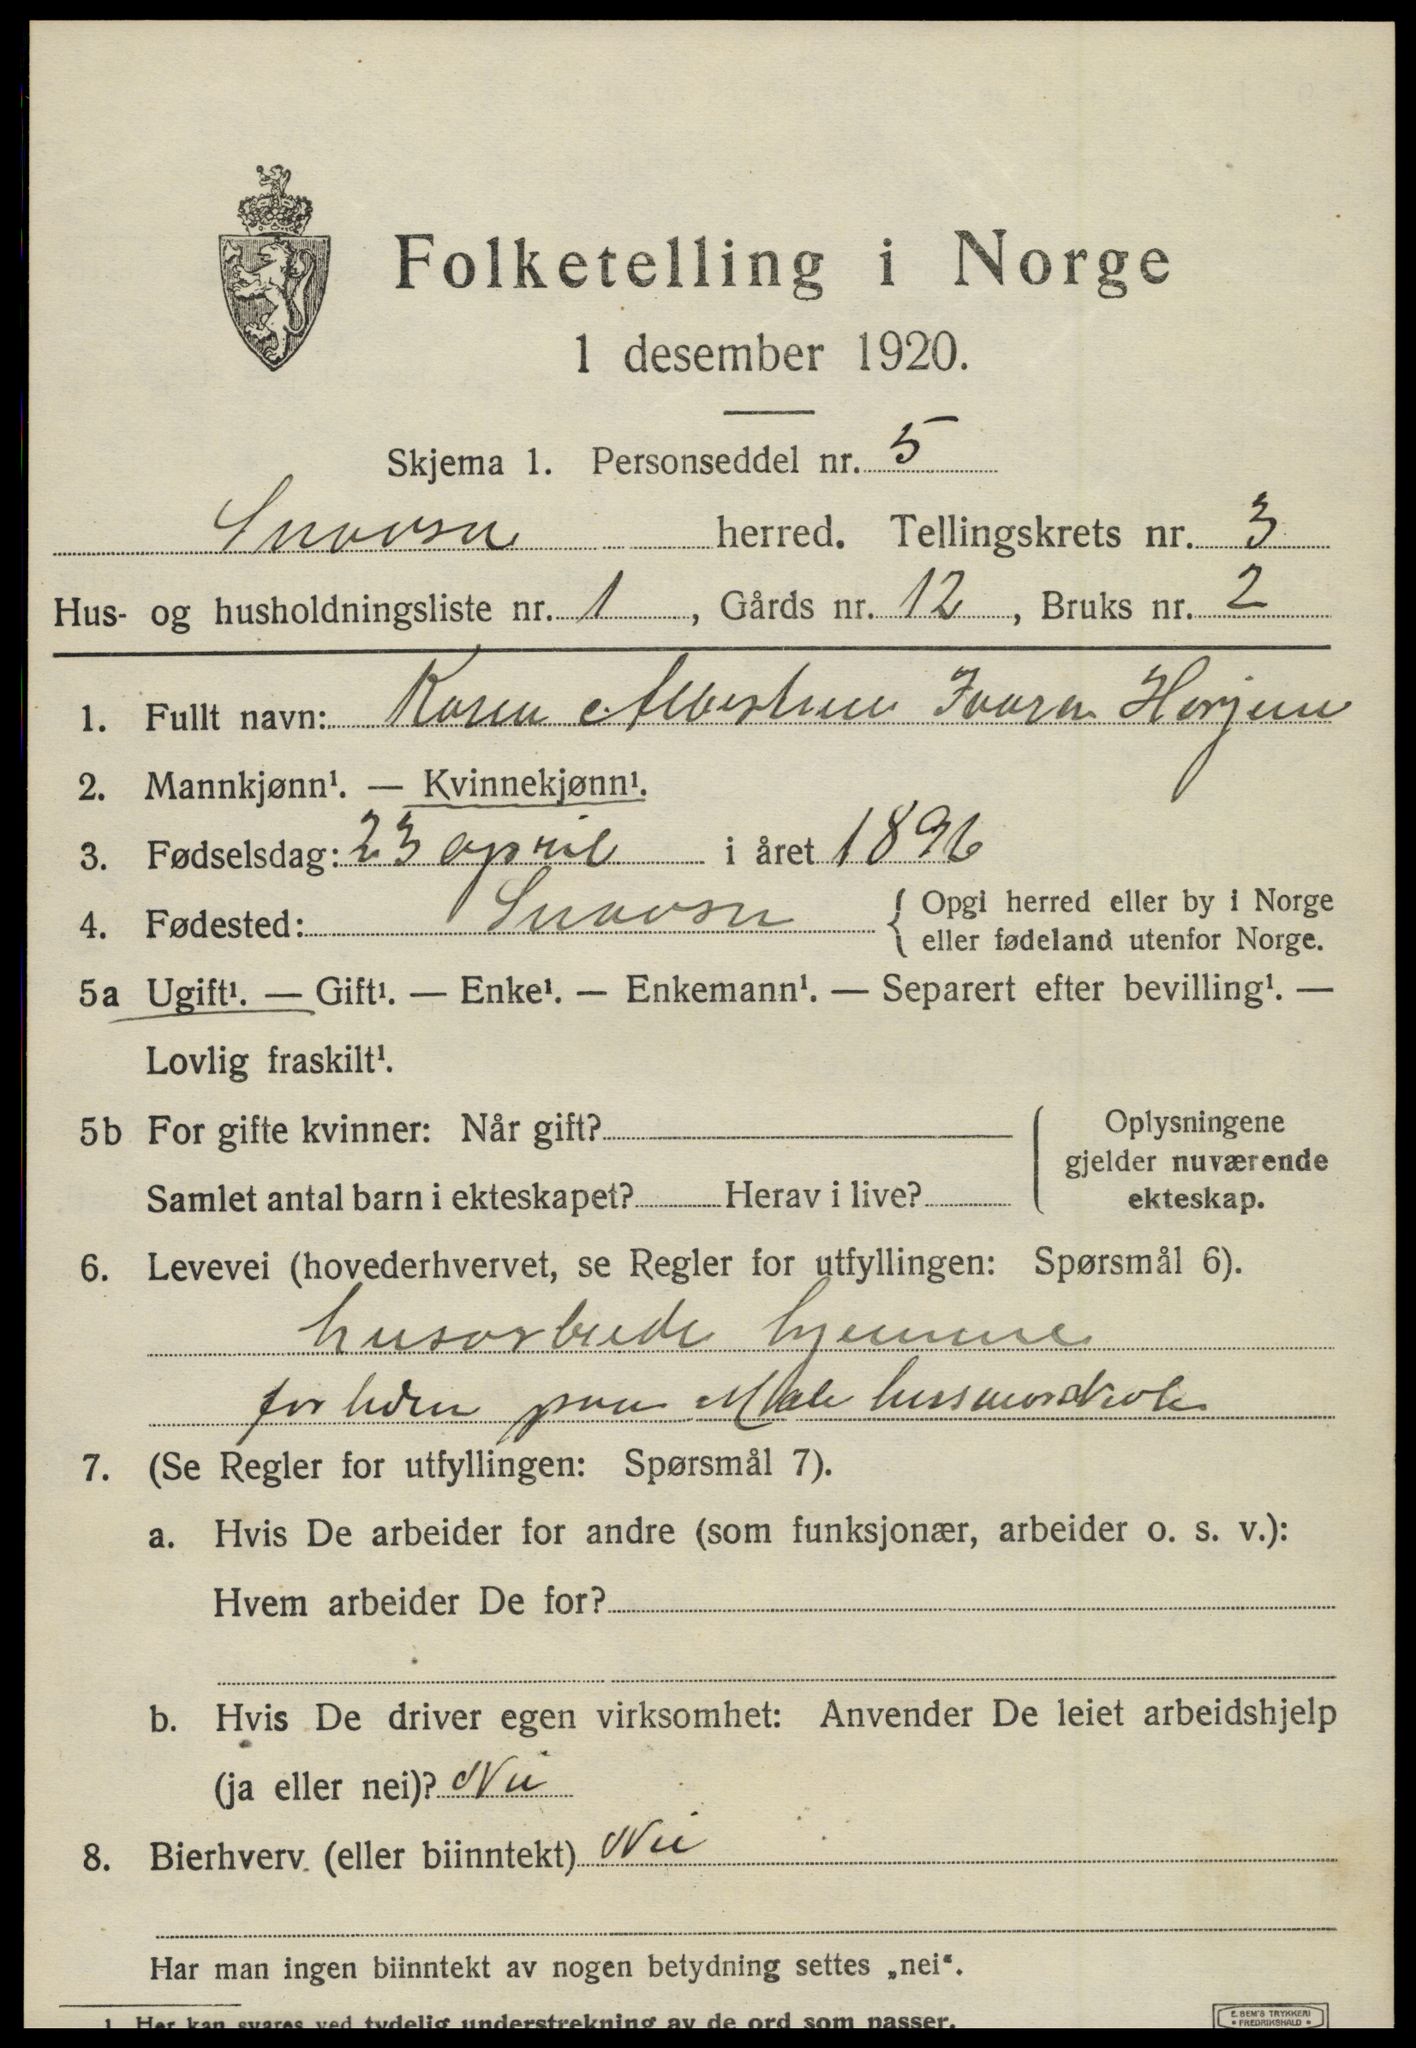 Folketelling i Norge
1 desember 1920.
Skjema 1. Personseddel nr. 5
Snaasa herred. Tellingskrets nr. 3
Hus- og husholdningsliste nr. 1, Gårds nr. 12, Bruks nr. 2
1. Fullt navn: Karen Albertine
2. Mannkjønn¹. — Kvinnekjønn¹.
3. Fødselsdag: 23 april i året 1896
4. Fødested: Snaasa { Opgi herred eller by i Norge
eller fødeland utenfor Norge.
5a Ugift¹. — Gift¹. — Enke¹. — Enkemann¹. — Separert efter bevilling¹. —
Lovlig fraskilt¹.
5b For gifte kvinner: Når gift? Oplysningene
gjelder nuværende
Samlet antal barn i ekteskapet? Herav i live? ekteskap.
6. Levevei (hovederhvervet, se Regler for utfyllingen: Spørsmål 6).
husarbeide hjemme
for tiden paa Mæle husmorskole
7. (Se Regler for utfyllingen: Spørsmål 7).
a. Hvis De arbeider for andre (som funksjonær, arbeider o. s. v.):
Hvem arbeider De for?
b. Hvis De driver egen virksomhet: Anvender De leiet arbeidshjelp
(ja eller nei)? Nei
8. Bierhverv (eller biinntekt) Nei
Har man ingen biinntekt av nogen betydning settes „nei“.
1 Her kan svares ved tydelig understrekning av de ord som passer.
E. SEM'S TRYKKERI
FREDRIKSHALD